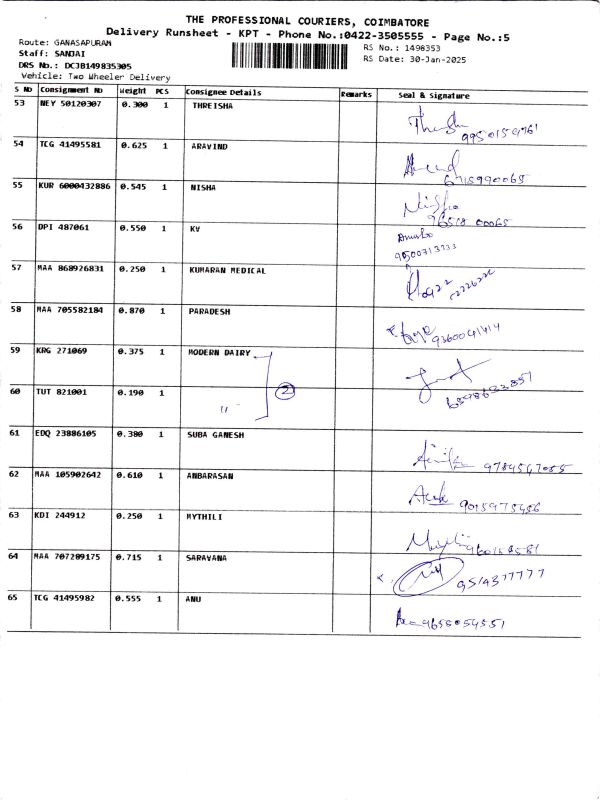 THE PROFESSIONAL COURIERS, COIMBATORE
Delivery Runsheet - KPT - Phone No.:0422-3505555 - Page No.:5
Route: GANASAPURAM
RS No.: 1498353
Staff: SANJAI
RS Date: 30-Jan-2025
DRS No.: DCJB149835305
Vehicle: Two Wheeler Delivery
S No Consignment No Weight PCS Consignee Details Remarks Seal & Signature
53 NEY 50120307 0.300 1 THREISHA
54 TCG 41495581 0.625 1 ARAVIND
55 KUR 6000432886 0.545 1 NISHA
56 DPI 487061 0.550 1 KV
57 MAA 868926831 0.250 1 KUMARAN MEDICAL
58 MAA 705582184 0.870 1 PARADESH
9360041414
59 KRG 271069 0.375 1 MODERN DAIRY
2
60 TUT 821001 0.190 1 "
61 EDQ 23886105 0.380 1 SUBA GANESH
62 MAA 105902642 0.610 1 ANBARASAN
63 KDI 244912 0.250 1 MYTHILI
64 MAA 707289175 0.715 1 SARAVANA
9514377777
65 TCG 41495982 0.555 1 ANU
9655054551